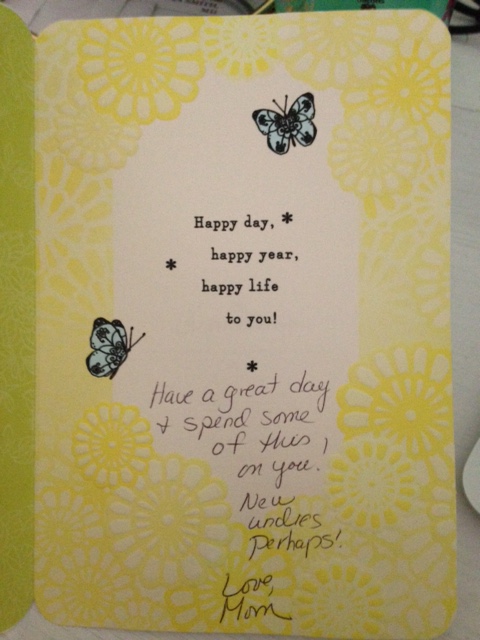 Happy day, *
* happy year,
happy life
to you!
*
Have a great day
+ spend some
of this,
on you.
New
undies
perhaps!
Love,
Mom